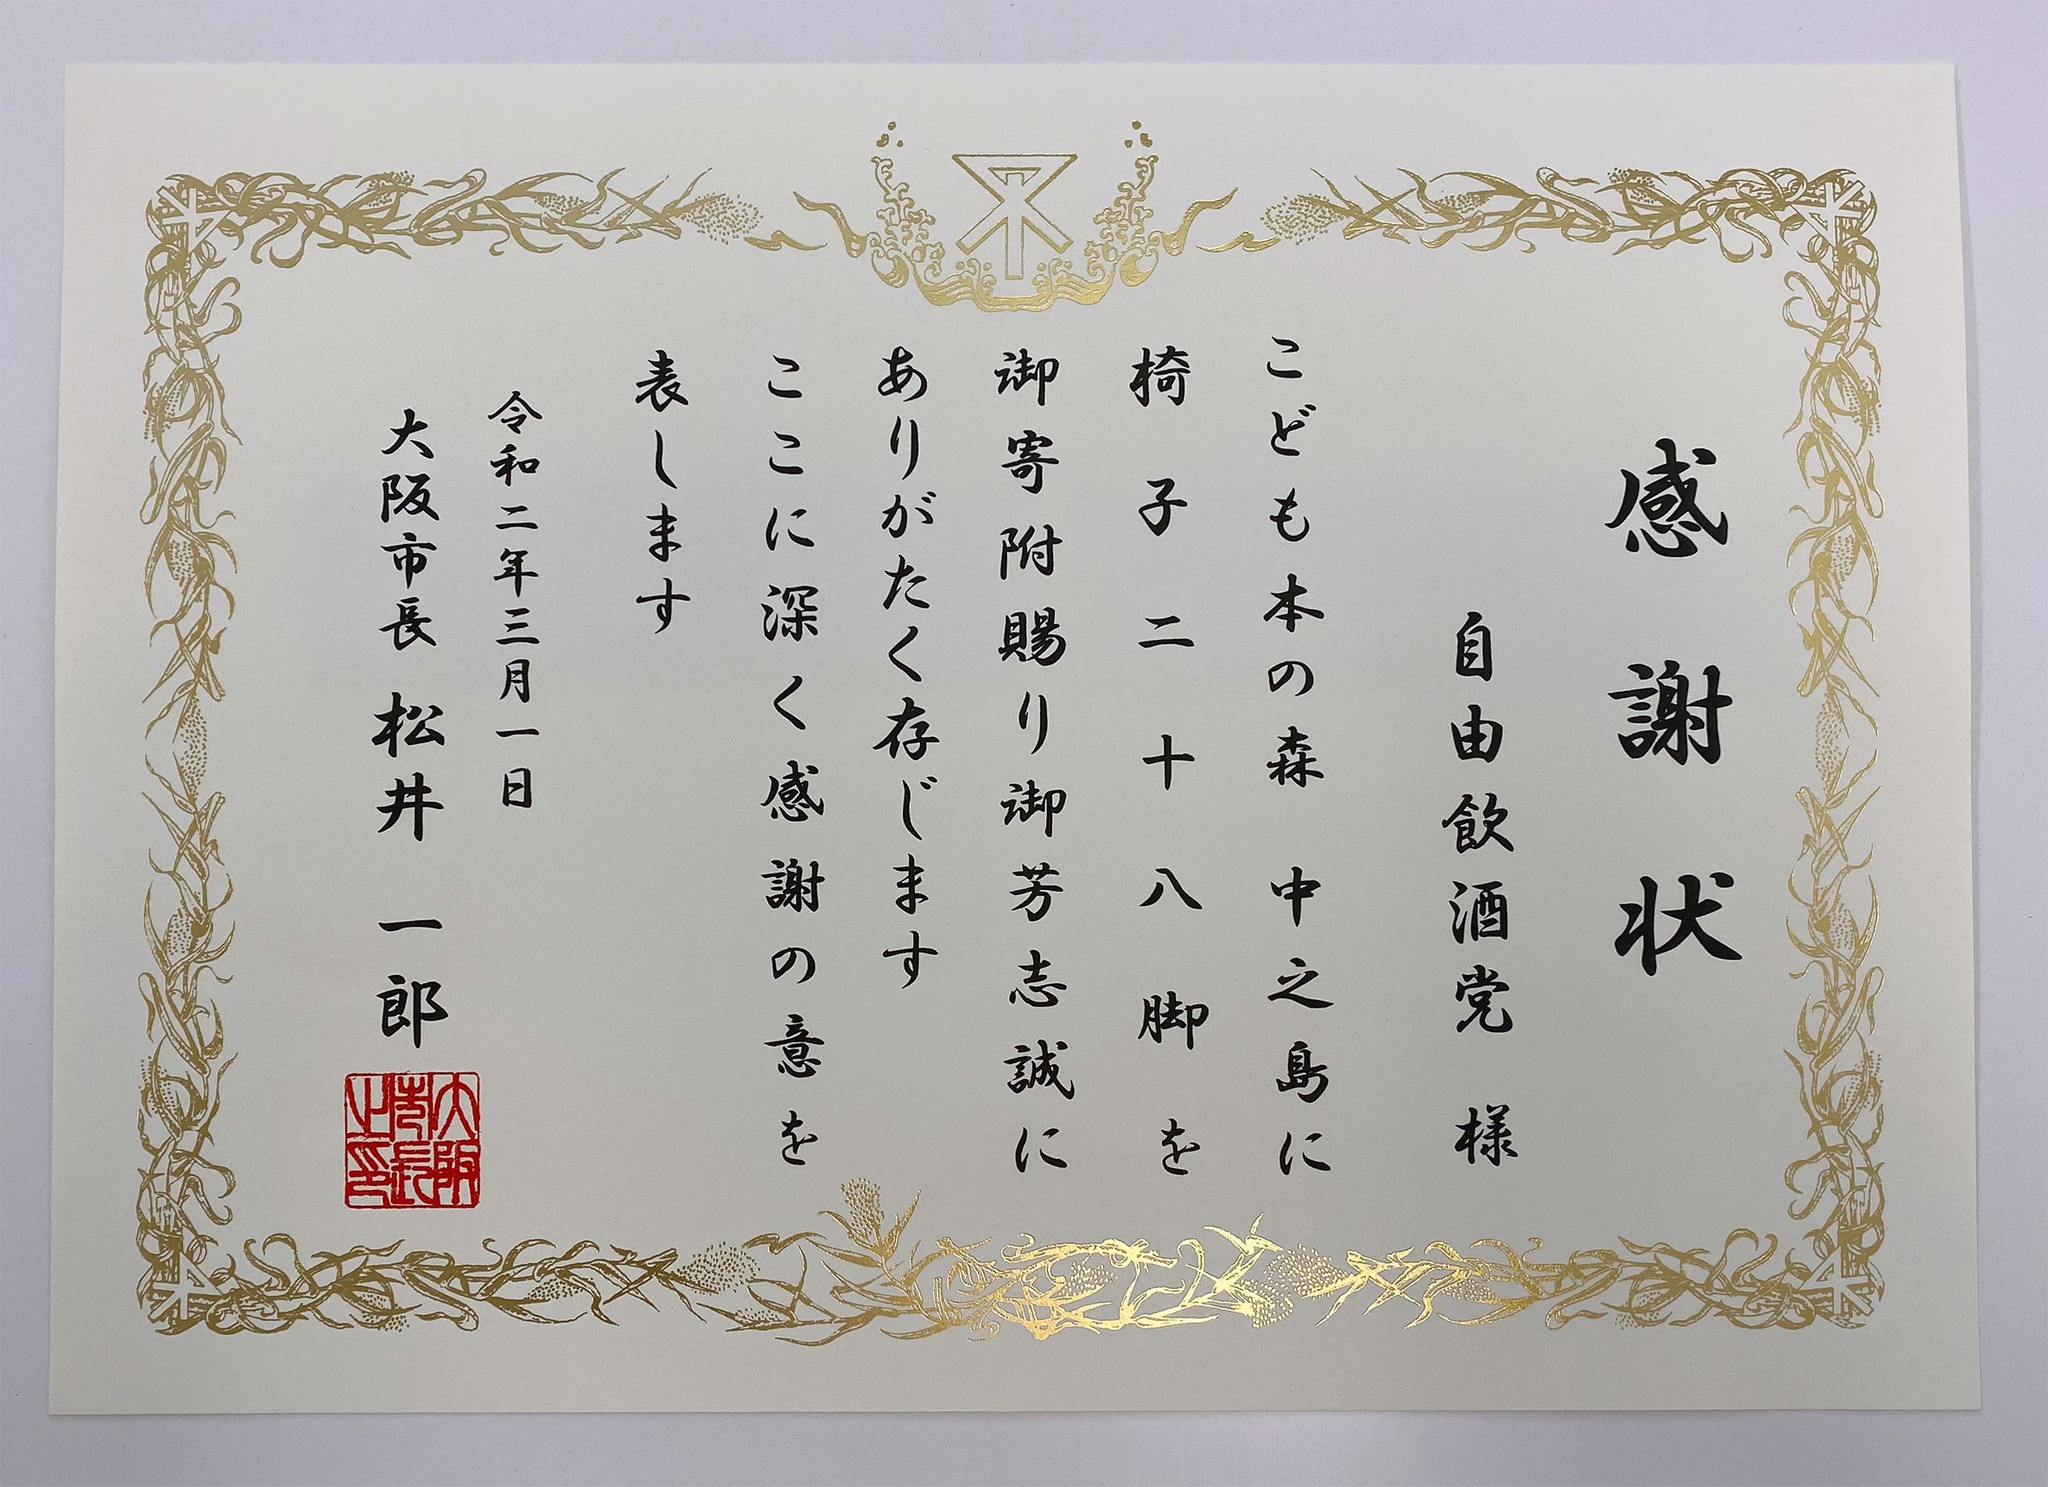 感謝状
自由飲酒党 様
こども本の森 中之島に
椅子二十八脚を
御寄附賜り御芳志誠に
ありがたく存じます
ここに深く感謝の意を
表します
令和二年三月一日
大阪市長 松井 一郎
大阪市長之印